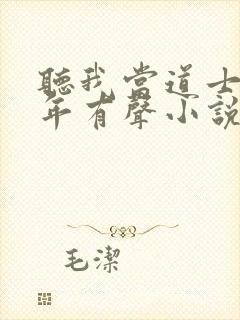 聽我當道士
年有聲小說
毛潔